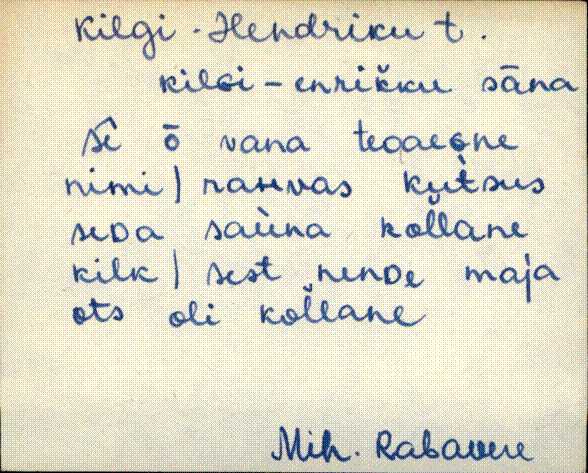 Kilgi-Hendriku t.
kilGi-enrikku sāna
sē ō vana teGaeGne
nimi | rahvas kut̀sus
seDa saùna kol̆lane
kilk | sest nenDe maja
ots oli kol̆lane
Mih. Rabavere